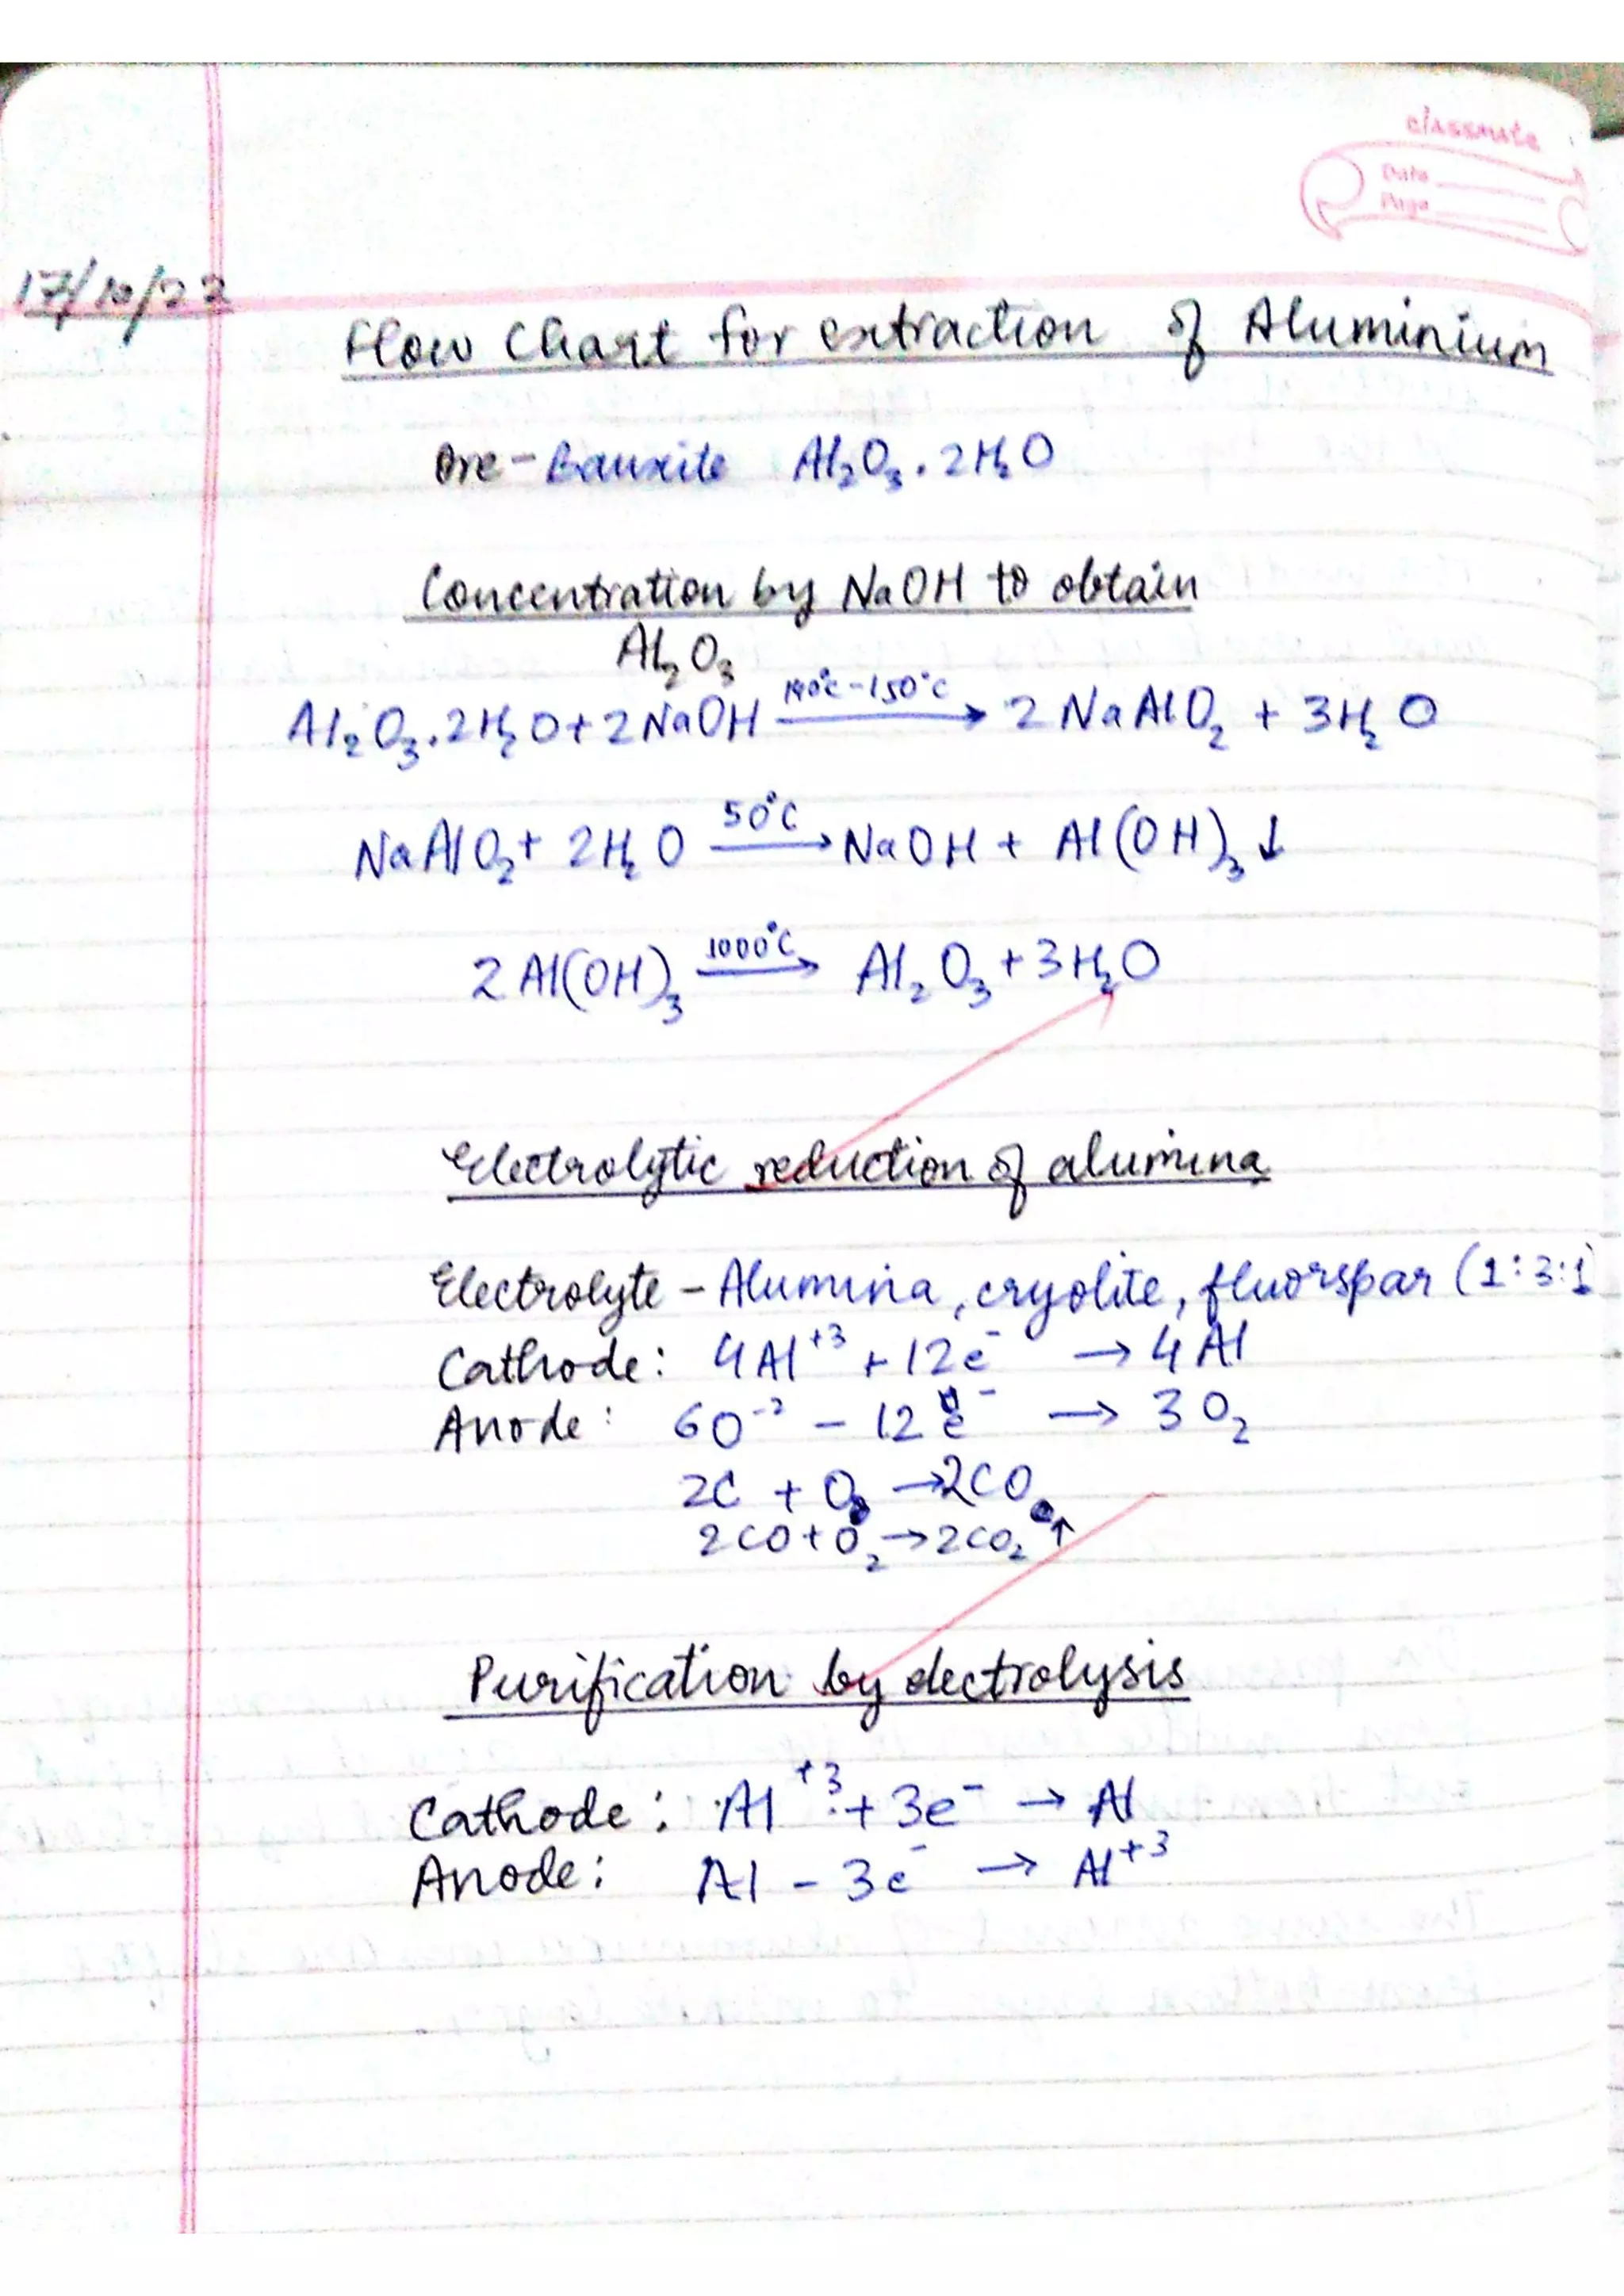 classmate
Date
Page
17/10/22
Flow Chart for extraction of Aluminium
Ore - Bauxite Al₂O₃.2H₂O
Concentration by NaOH to obtain
Al₂O₃
Al₂O₃.2H₂O + 2NaOH 140°C-150°C → 2 NaAlO₂ + 3H₂O
NaAlO₂ + 2H₂O 50°C → NaOH + Al(OH)₃ ↓
2Al(OH)₃ 1000°C → Al₂O₃ + 3H₂O
Electrolytic reduction of alumina
Electrolyte - Alumina, cryolite, fluorspar (1:3:1)
Cathode: 4Al⁺³ + 12e⁻ → 4Al
Anode: 6O⁻² - 12e⁻ → 3O₂
2C + O₂ → 2CO
2CO + O₂ → 2CO₂ ↑
Purification by electrolysis
Cathode: Al⁺³ + 3e⁻ → Al
Anode: Al - 3e⁻ → Al⁺³